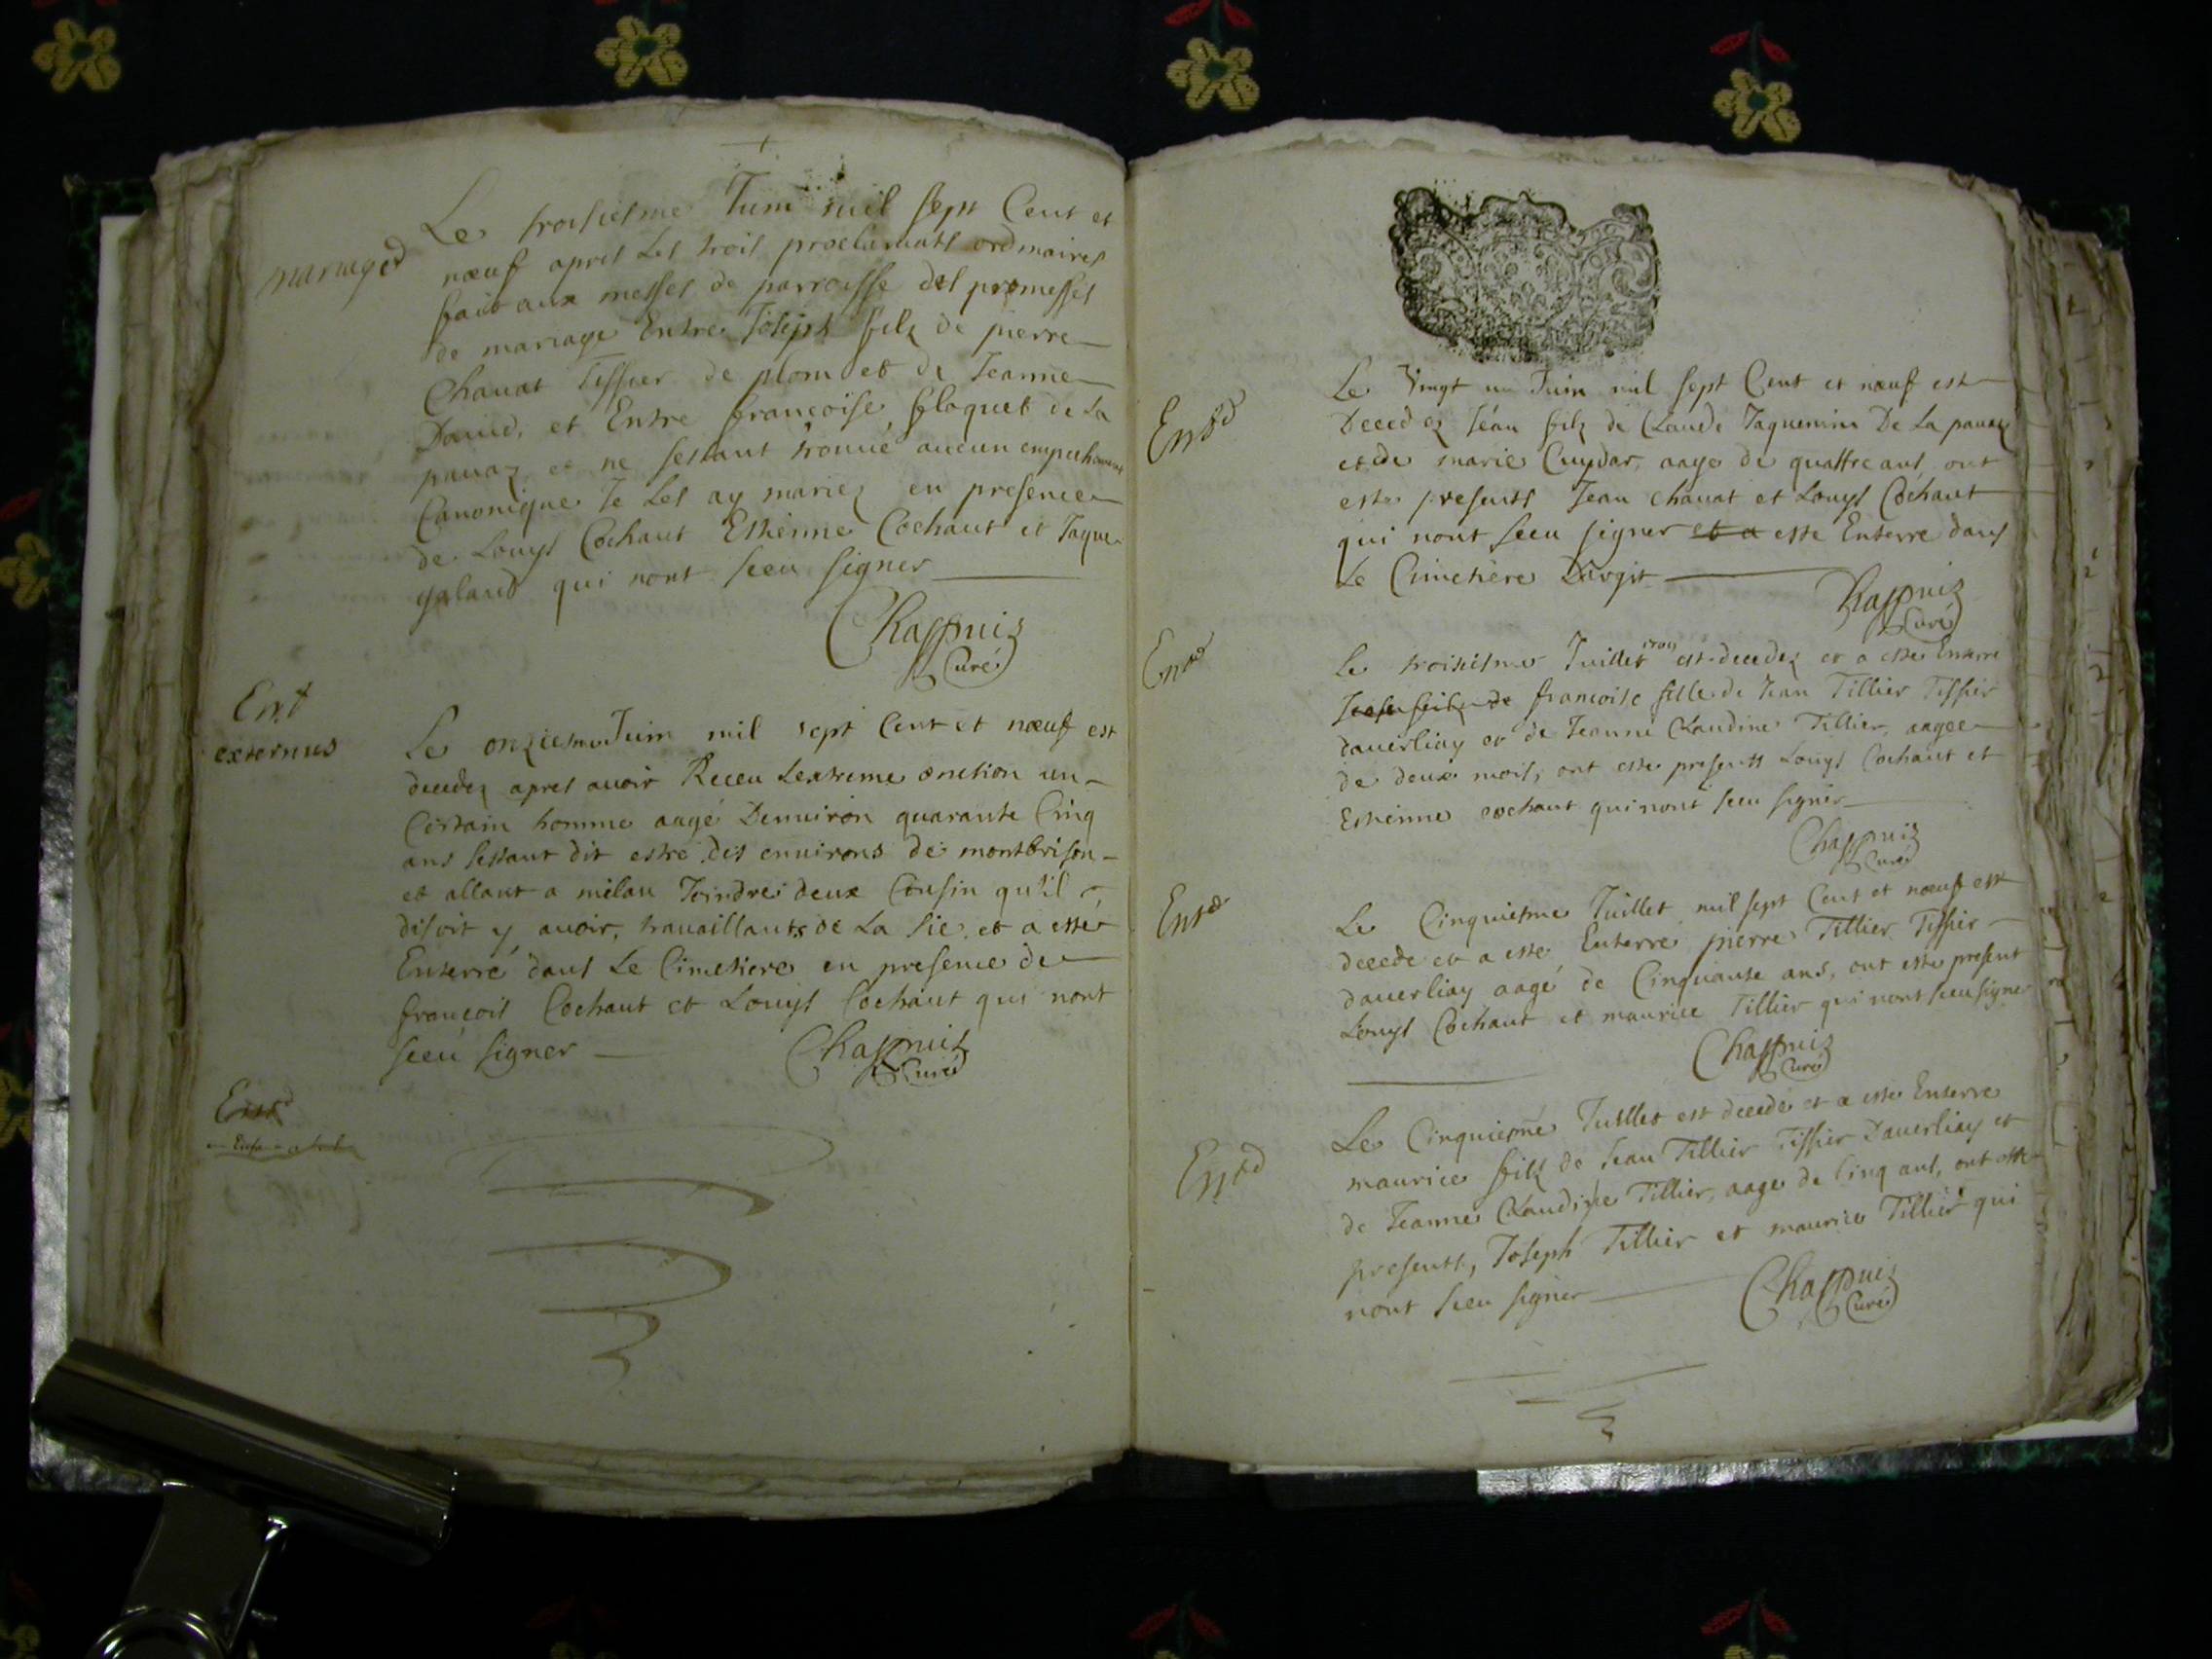 mariage
Le troisiesme Juin mil sept Cent et
nœuf apres Les trois proclamats ordinaires
fait aux messes de parroisse des promesses
de mariage Entre Joseph filz de pierre
Chauat Tissier de plom et de Jeanne
Dauid, et Entre françoise floquet de La
pauaz et ne sestant trouué aucun empechement
Canonique Je Les ay mariez en presence
de Louys Cochaut Estienne Cochaut et Jaque
galand qui nont sceu signer
Chappuiz
Curé
Ent
externus
Le onziesme Juin mil sept Cent et nœuf est
decedez apres auoir Receu Lextreme onction un
Certain homme aagé Denuiron quarante Cinq
ans sestant dit estre des enuirons de montbrison
et allant a milan Joindre deux Cousin qu'il
disoit y auoir, trauaillants de La sie, et a esté
Enterré dans Le Cimetiere en presence de
françois Cochaut et Louys Cochaut qui nont
sceu signer
Chappuiz
Curé
Ent
Ent
Le Vingt un Juin mil sept Cent et nœuf est
Decedez Jean filz de Claude Jaquemin De La pauaz
et de marie Cuydar, aage de quattre ans, ont
este presents Jean Chauat et Louys Cochaut
qui nont sceu signer et a este Enterre dans
Le Cimetière
Chappuiz
Curé
Ent
Le troisiesme Juillet 1709 est decedez et a este Enterre
francoise fille de Jean Tillier Tissier
dauerliay et de Jeanne Claudine Tillier, aagee
de deux mois, ont este presents Louys Cochaut et
Estienne cochaut qui nont sceu signer
Chappuiz
Curé
Ent
Le Cinquiesme Juillet mil sept Cent et nœuf est
decede et a esté Enterré pierre Tillier Tissier
dauerliay aagé de Cinquante ans, ont este present
Louys Cochaut et maurice Tillier qui nont sceu signer
Chappuiz
Curé
Ent
Le Cinquiesme Juillet est decede et a este Enterre
maurice filz de Jean Tillier Tissier Dauerliay et
de Jeanne Claudine Tillier, aage de Cinq ans, ont este
presents, Joseph Tillier et maurice Tillier qui
nont sceu signer
Chappuiz
Curé